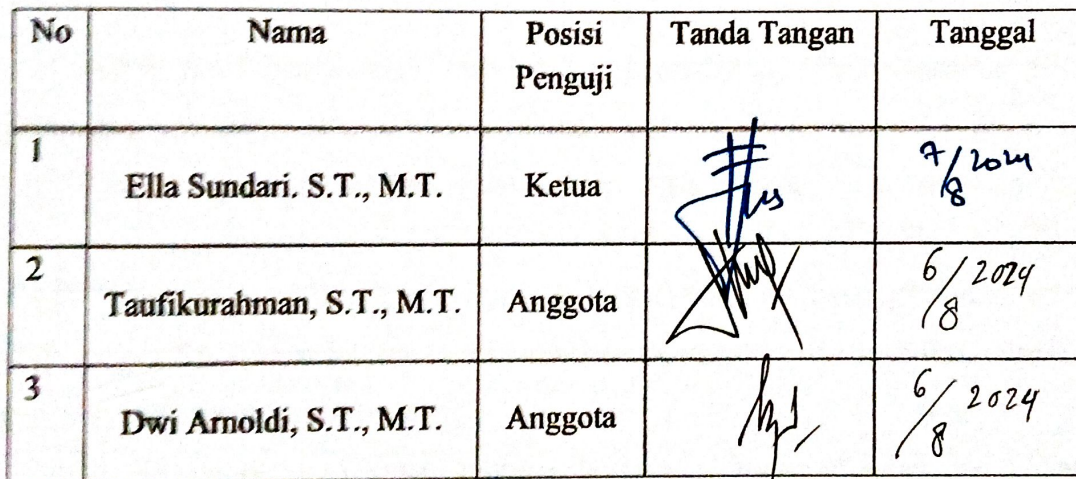 No Nama Posisi Penguji Tanda Tangan Tanggal
1 Ella Sundari, S.T., M.T. Ketua 7/8 2024
2 Taufikurahman, S.T., M.T. Anggota 6/8 2024
3 Dwi Arnoldi, S.T., M.T. Anggota 6/8 2024